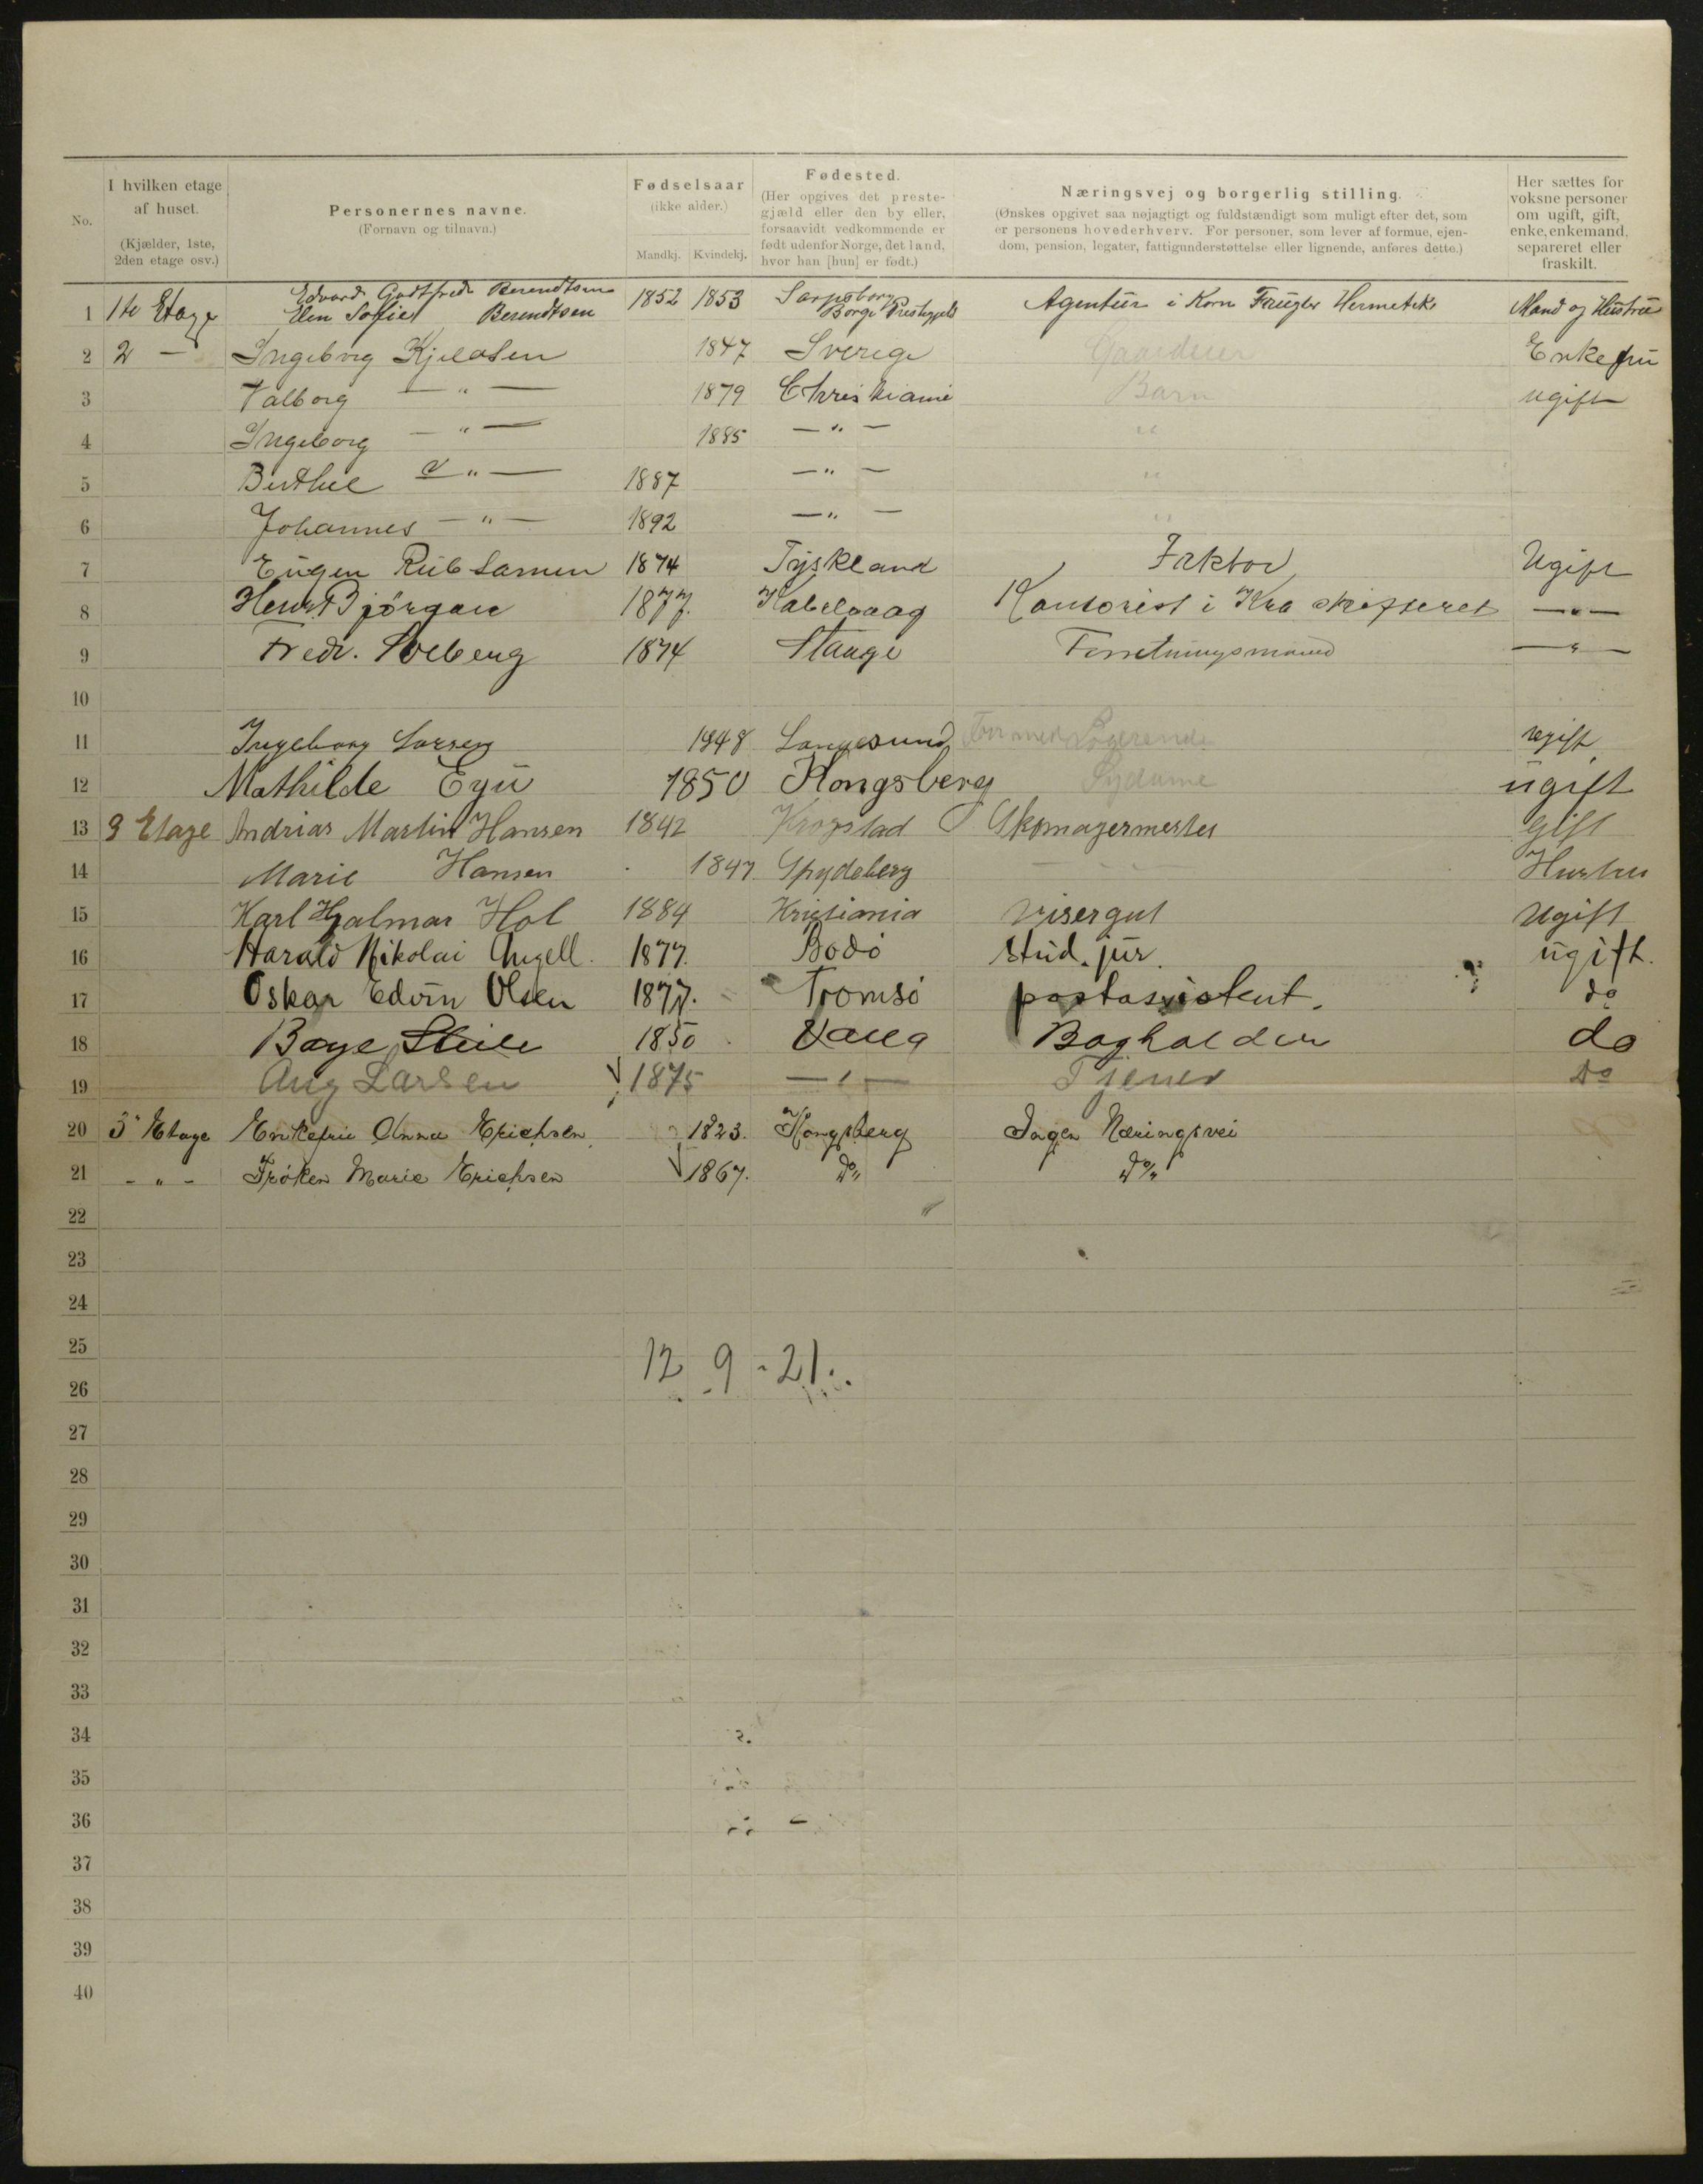 No.
I hvilken etage af huset.
(Kjælder, 1ste, 2den etage osv.)
Personernes navne.
(Fornavn og tilnavn.)
Fødselsaar
(ikke alder.)
Mandkj. Kvindekj.
Fødested.
(Her opgives det prestegjæld eller den by eller, forsaavidt vedkommende er født udenfor Norge, det land, hvor han [hun] er født.)
Næringsvej og borgerlig stilling.
(Ønskes opgivet saa nøjagtigt og fuldstændigt som muligt efter det, som er personens hovederhverv. For personer, som lever af formue, ejendom, pension, legater, fattigunderstøttelse eller lignende, anføres dette.)
Her sættes for voksne personer om ugift, gift, enke, enkemand, separeret eller fraskilt.
1 1te Etage Edvard Godtfred Berendtsen 1852 1853 Sarpsborg Agentur i Korn Frugter Hermetik Mand og Hustru
Elen Sofie Berendtsen Borge Prestegjeld
2 2 — Ingeborg Kjelsen 1847 Sverige Gaardeier Enkefru
3 Valborg — " — 1879 Christiania Barn ugift
4 Ingeborg — " — 1885 — " — "
5 Berthel — " — 1887 — " — "
6 Johannes — " — 1892 — " — "
7 Eugen Rübsamen 1874 Tyskland Faktor Ugift
8 Henr. Bjørgan 1877. Kabelvaag Kontorist i Kra skifteret — " —
9 Fredr. Solberg 1874 Stange Forretningsmand — " —
10
11 Ingeborg Larsen 1848 Langesund Logerende ugift
12 Mathilde Egu 1850 Kongsberg Sydame ugift
13 3 Etage Andrias Martin Hansen 1842 Krogstad Skomagermester Gift
14 Marie Hansen 1847 Spydeberg Hustru
15 Karl Hjalmar Hol 1884 Kristiania visergut Ugift
16 Harald Nikolai Angell. 1877. Bodø stud. jur. ugift.
17 Oskar Edvin Olsen 1877. Tromsø postassistent. do
18 Baye 1850 Vang Bogholder do
19 Aug Larsen 1875 — " — Tjener Do
20 3 Etage Enkefrue Anna Erichsen 1823. Kongsberg Ingen Næringsvei
21 - " - Frøken Marie Erichsen 1867. Do" Do"
22
23
24
25
12 9 - 21.
26
27
28
29
30
31
32
33
34
35
36
37
38
39
40